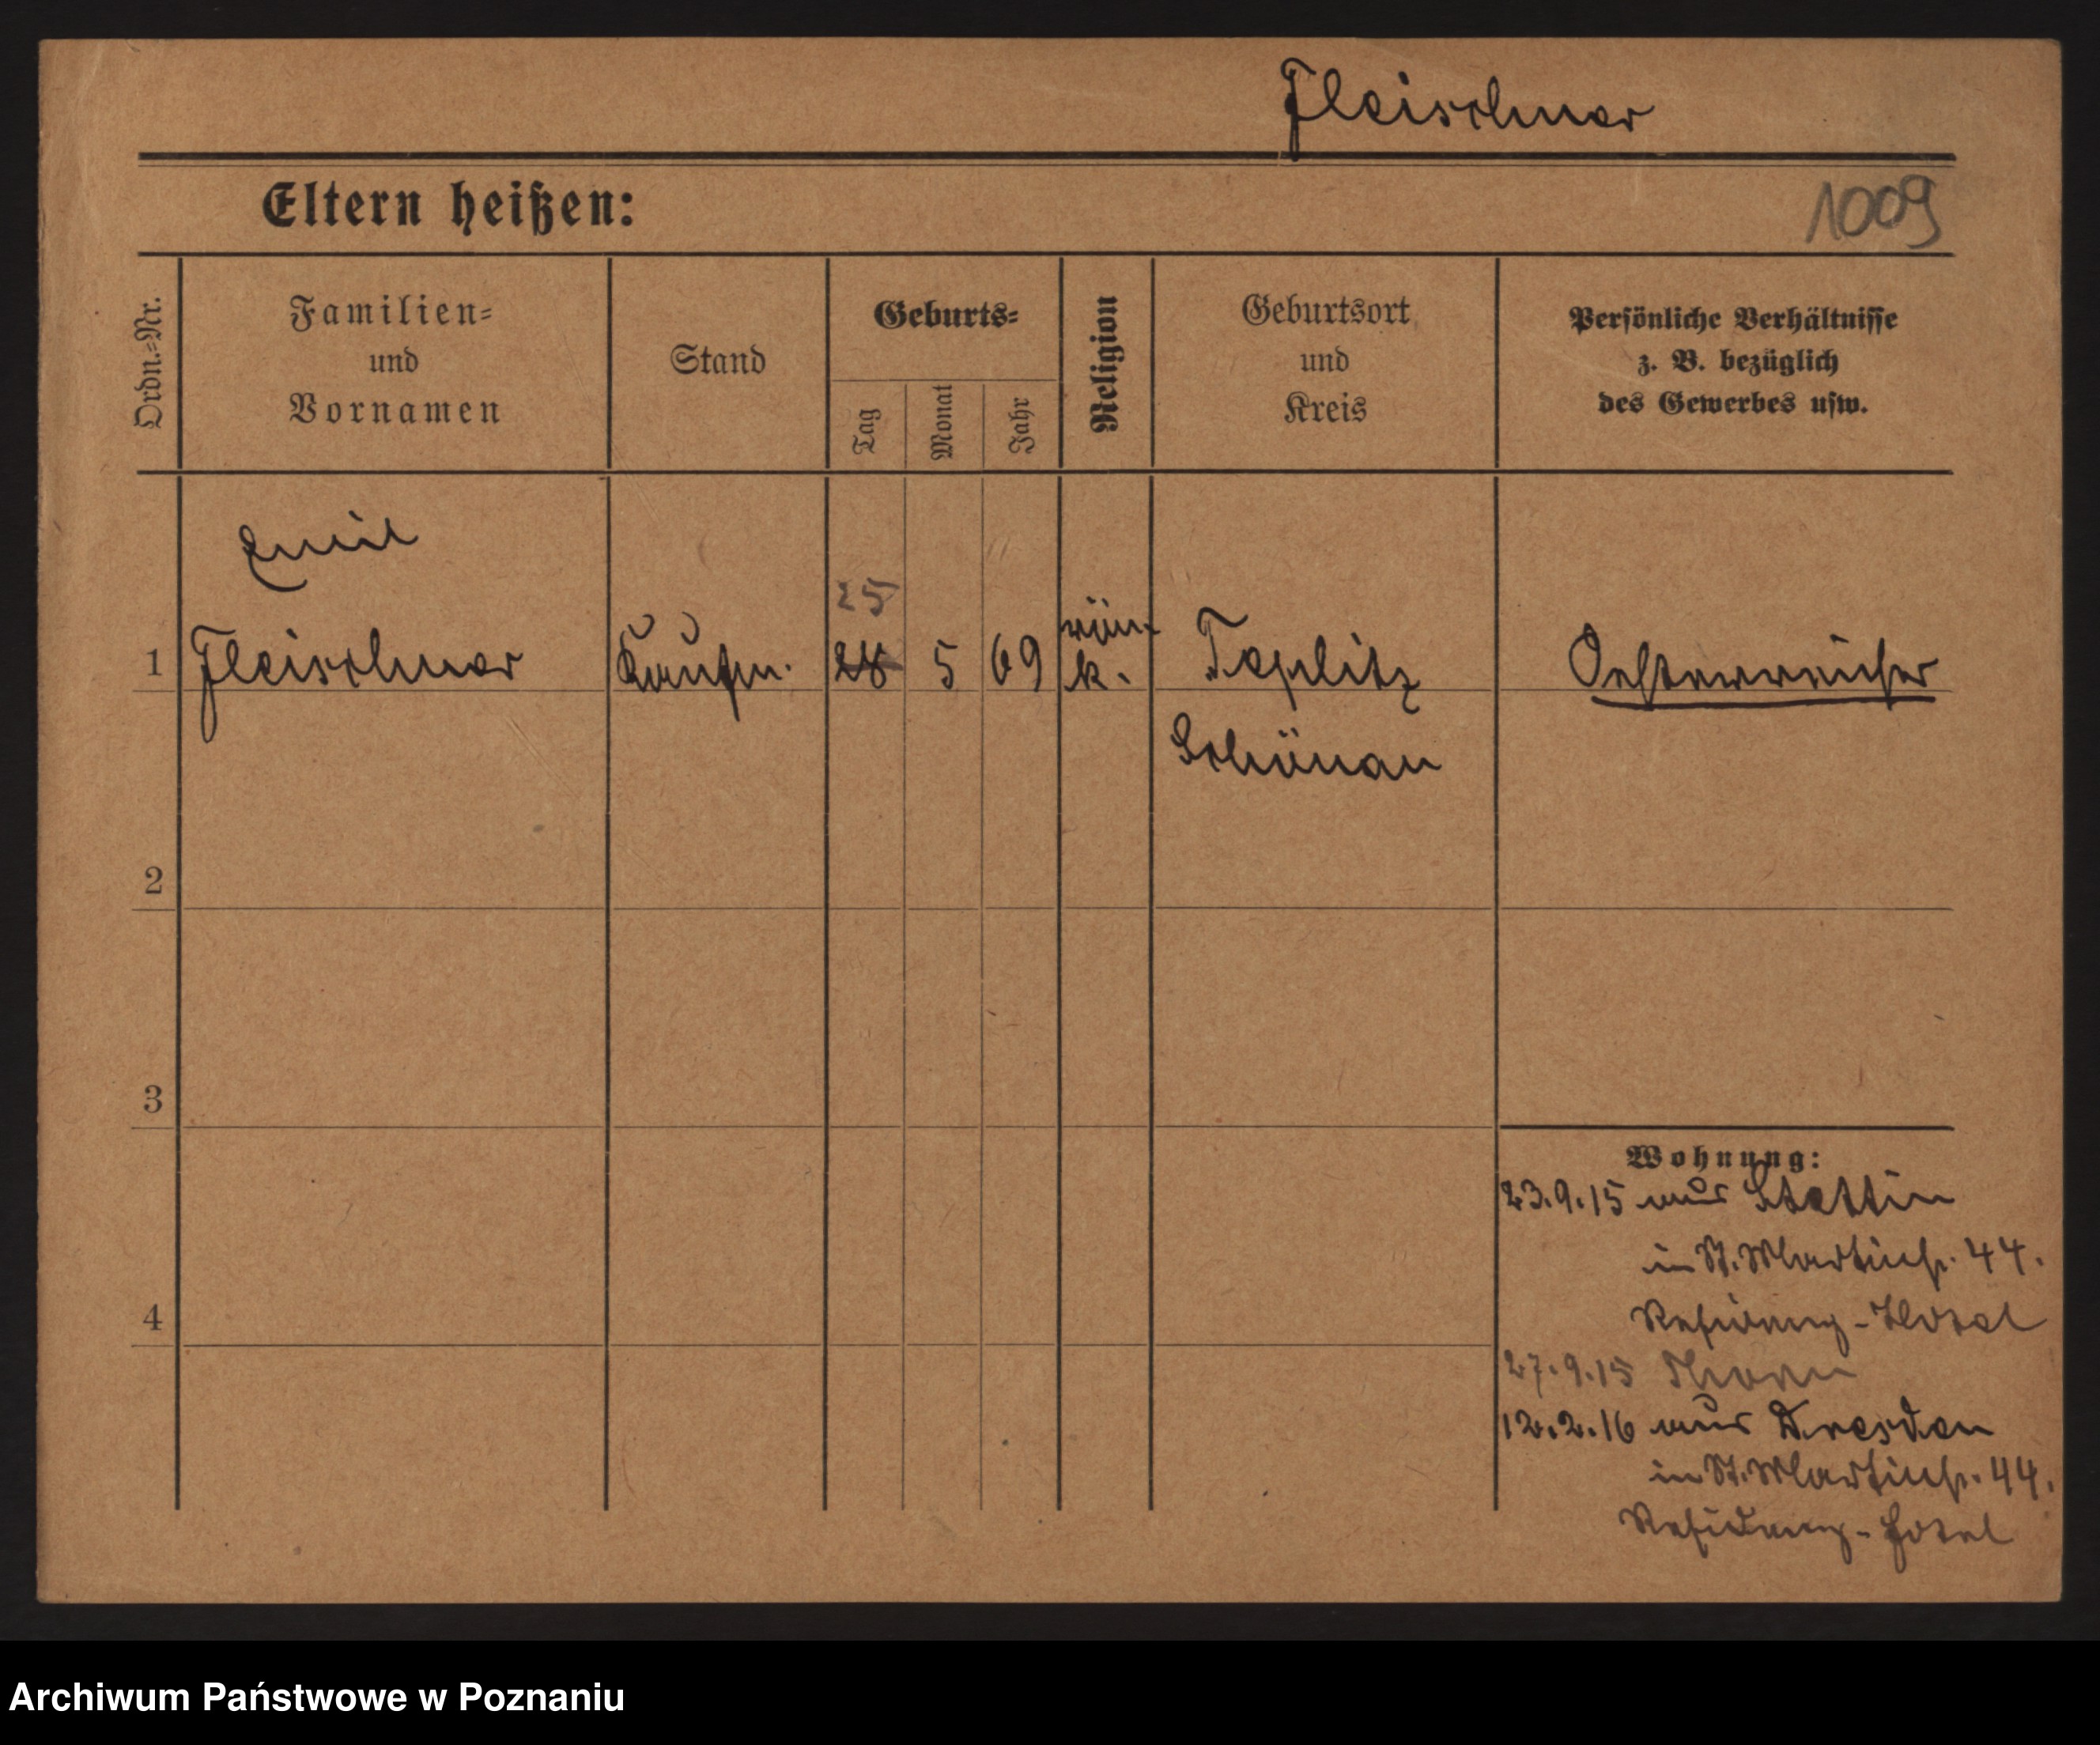 Fleischner
Eltern heißen:
1009
Ordn.-Nr.
Familien-
und
Vornamen
Stand
Geburts-
Tag
Monat
Jahr
Religion
Geburtsort
und
Kreis
Persönliche Verhältnisse
z. B. bezüglich
des Gewerbes usw.
Emil
25
1 Fleischner Kaufm. 28 5 69 röm. k. Teplitz Oesterreicher
Schönau
2
3
Wohnung:
23.9.15 aus Stettin
in St. Martinstr. 44.
Residenz-Hotel
4
27.9.15 Thorn
12.2.16 aus Dresden
in St. Martinstr. 44.
Residenz-Hotel
Archiwum Państwowe w Poznaniu